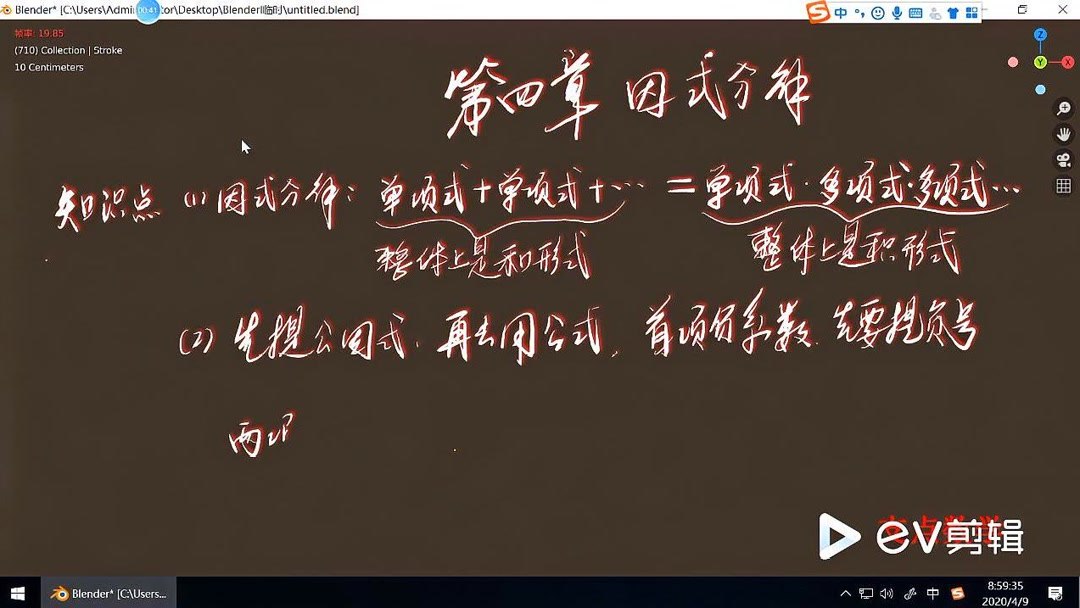 Blender* [C:\Users\Admi
00:41
tor\Desktop\Blender\临时\untitled.blend]
中
帧率: 19.85
(710) Collection | Stroke
10 Centimeters
Z
Y
X
第四章 因式分解
知识点 (1) 因式分解: 单项式+单项式+… = 单项式·多项式·多项式…
整体上是和形式 整体上是积形式
(2) 先提公因式. 再去用公式, 首项负系数. 先要提负号
两
EV剪辑
Blender* [C:\Users...
中
8:59:35
2020/4/9